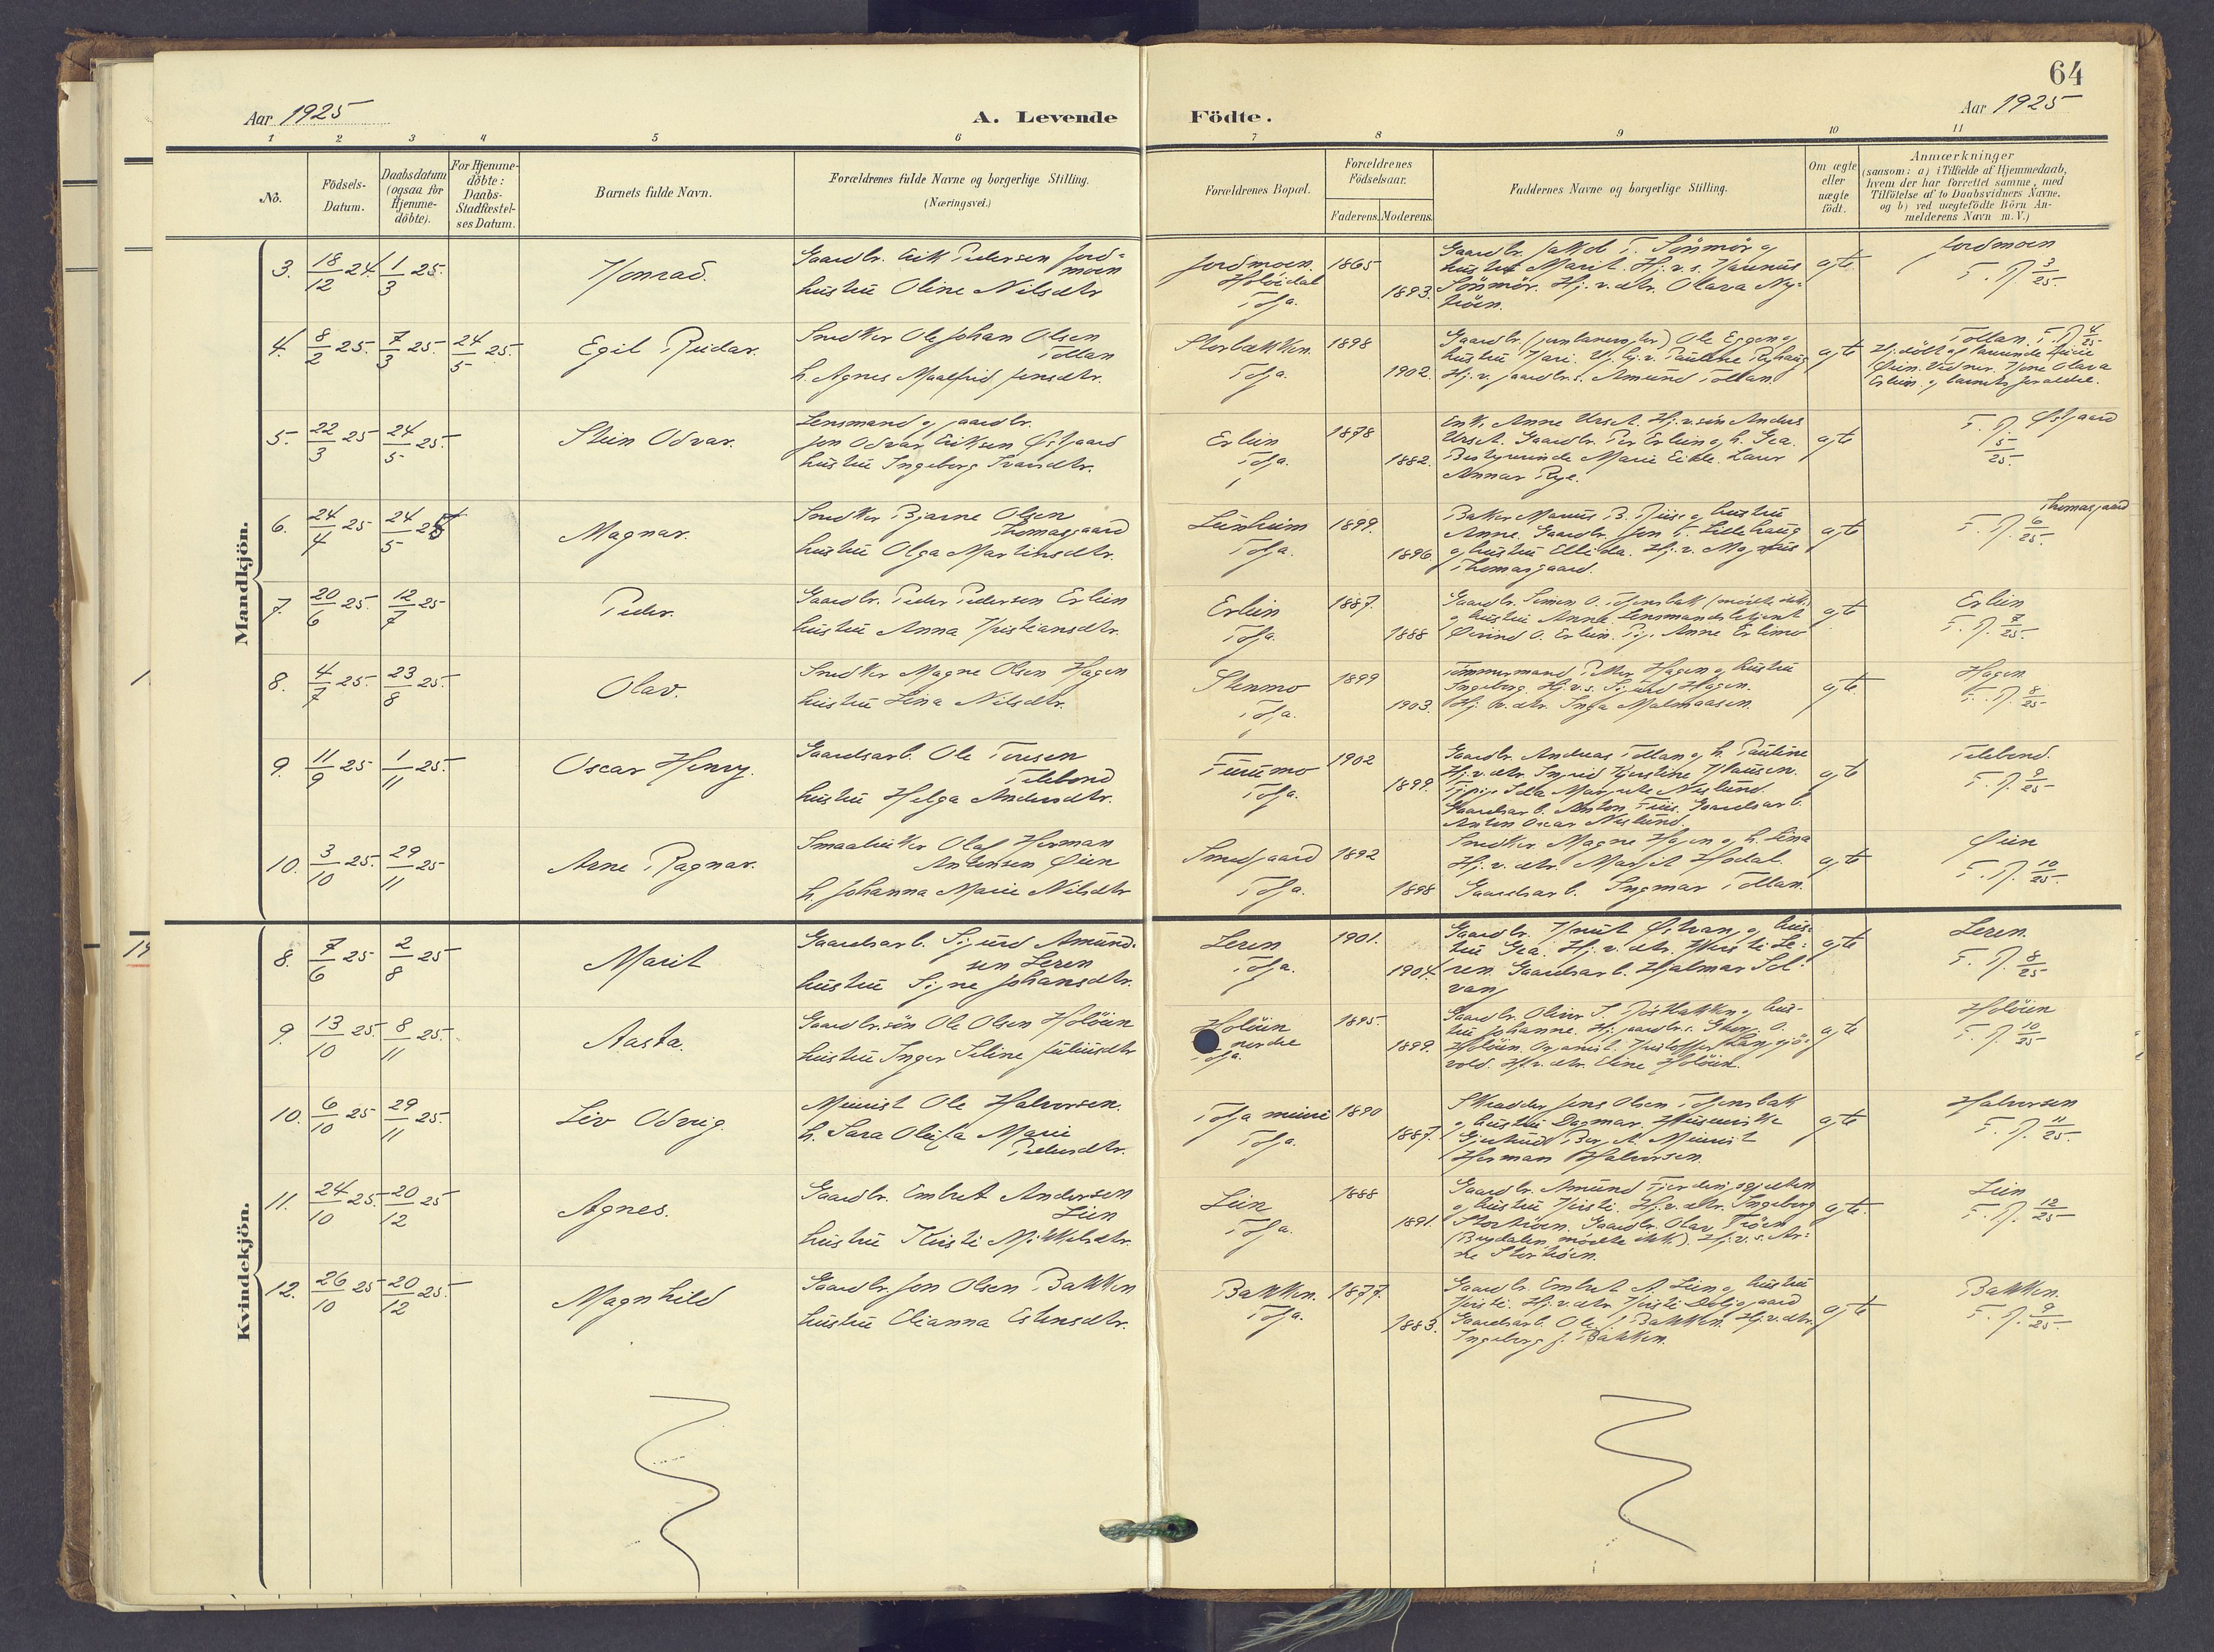 64
Aar 1925
A. Levende
Födte.
Aar 1925
1 2 3 4 5 6 7 8 9 10 11
No.
Födsels-
Datum.
Daabsdatum
(ogsaa for
Hjemme-
döbte).
For Hjemme-
döbte:
Daabs-
Stadfæstel-
ses Datum.
Barnets fulde Navn.
Forældrenes fulde Navne og borgerlige Stilling.
(Næringsvei.)
Forældrenes Bopæl.
Forældrenes
Födselsaar.
Faderens. Moderens.
Faddernes Navne og borgerlige Stilling.
Om ægte
eller
uægte
födt.
Anmærkninger
(saasom: a) i Tilfælde af Hjemmedaab,
hvem der har forrettet samme, med
Tilföielse af to Daabsvidners Navne,
og b) ved uægtefödte Börn An-
melderens Navn m. V.)
Mandkjön.
3. 18/12 24. 1/3 25.
Konrad.
Gaardbr. Erik Pedersen Jord-
moen
hustru Oline Nilsdtr.
Jordmoen.
Holöidal
Tolga.
1865
1893.
hustru Marit. Hj.v.s.
Sönmör. Hj.v.dtr. Olava Ny-
tröen.
ægte
Jordmoen
F. R. 3/25.
4. 8/2 25. 7/3 25. 24/5 25.
Egil Reidar.
Snedker Ole Johan Olsen
Tollan
h. Agnes Maalfrid Jensdtr.
Storbakken.
Tolga.
1898
1902.
Gaardbr. Ole Eggen og
hustru Kari.
Hj.v. gaardbr.s. Amund Tollan.
ægte
Tollan. F. R. 4/25
Öien. Vidner. Kone Olava
Erlien og barnets foraldre.
5. 22/3 25 24/5 25.
Stein Odvar.
Lensmand og gaardbr.
Jon Odvar Eriksen Östgaard
hustru Ingeborg Ivarsdtr.
Erlien
Tolga.
1878
1882.
Enk. Anne Urset. Hj.v.sön Anders
Urset. Gaardbr. Per Erlien og h. Gea.
Bestyrerinde Marie Eide. Lærer
Annar Rye.
ægte
F. R. Östgaard
5/25.
6. 24/4 25 24/5 25
Magnar.
Snedker Bjarne Olsen
Thomasgaard
hustru Olga Martinsdtr.
Lunheim
Tolga.
1899.
1896.
Baker Marius B. Riise og hustru
Anne. Gaardbr. Jon T. Lillehaug
og hustru Ellida. Hj.v. Magnus
Thomasgaard.
ægte
Thomasgaard
F. R. 6/25.
7. 20/6 25. 12/7 25
Peder.
Gaardbr. Peder Pedersen Erlien
hustru Anna Kristiansdtr.
Erlien
Tolga.
1887.
1888
Gaardbr. Simen O. Tolgensbak (mödte ikke)
og hustru Anne. Lensmandsbetjent
Öivind O. Erlien. Pige Anne Erlimo
ægte
Erlien
F. R. 7/25.
8. 4/7 25. 23/8 25.
Olav.
Snedker Magne Olsen Hagen
hustru Lina Nilsdtr.
Stenmo
Tolga.
1899
1903.
Tömmermand Peder Hagen og hustru
Ingeborg. Hj.v.s. Sigurd Hagen.
Hj.v.dtr. Inga Malmaasen.
ægte
Hagen
F. R. 8/25
9. 11/9 25 1/11 25.
Oscar Henry.
Gaardsarb. Ole Toresen
Telebond
hustru Helga Andersdtr.
Furumo
Tolga.
1902
1899.
Gaardbr. Andreas Tollan og h. Pauline
Hj.v.dtr. Ingrid Kjerstine Klausen.
Neslund.
Gaardsarb. Anton Friis. Gaardsarb.
Anton Oscar Neslund.
ægte
Telebond.
F. R. 9/25
10. 3/10 25. 29/11 25
Arne Ragnar.
Smaabruker Olaf Herman
Antonsen Öien
h. Johanna Marie Nilsdtr
Smedgaard
Tolga.
1892
1898
Snedker Magne Hagen og h. Lina
Hj.v.dtr. Margit Hodal.
Gaardsarb. Ingmar Tollan.
ægte
Öien
F. R. 10/25.
Kvindekjön.
8. 7/6 25 2/8 25
Marit
Gaardsarb. Sigurd Amund-
sen Leren
hustru Signe Johansdtr.
Leren
Tolga.
1901.
1904.
Gaardbr. Knut Östvang og hus-
tru Gea. Hj.v.dtr. Kirsti Le-
ren. Gaardsarb. Hjalmar Sol-
vang
ægte
Leren.
F. R. 8/25
9. 13/10 25. 8/11 25.
Aasta.
Gaardbr.sön Ole Olsen Holöien
hustru Inger Seline Juliusdtr
Holöien
nordre
Tolga.
1895.
1899.
Gaardbr. Oliver S. Röstbakken og hus-
tru Johanne. Hj. gaardbr.s. O.
Holöien. Organist. Kristoffer Langsjö-
vold. Hj.v.dtr. Eline Holöien.
ægte
Holöien
F. R. 10/25
10. 6/10 25 29/11 25.
Liv Odvig.
Murmest Ole Halvorsen.
h. Sara Oleifa Marie
Pedersdtr.
Tolga
Tolga.
1890
1887.
Skrædder Jens Olsen Tolgensbak
og hustru Dagmar.
Gjertrud Berg.
Herman Halvorsen.
ægte
Halvorsen
F. R. 11/25.
11. 24/10 25. 20/12 25
Agnes.
Gaardbr. Embret Andersen
Lien
hustru Kirsti Mikkelsdtr.
Lien
Tolga.
1888
1891.
Gaardbr. Amund
og hustru Kirsti. Hj.v.dtr. Ingeborg
Stortröen. Gaardbr. Olav Tröen
(Brydalen, mödte ikke). Hj.v.s. Ar-
ne Stortröen.
ægte.
Lien
F. R. 12/25
12. 26/10 25 20/12 25.
Magnhild
Gaardbr. Jon Olsen Bakken
hustru Elianna Estensdtr.
Bakken.
Tolga.
1877.
1883.
Gaardbr. Embret A. Lien og hustru
Kirsti. Hj.v.dtr. Kirsti
Gaardsarb. Ole J. Bakken. Hj.v.dtr.
Ingeborg J. Bakken.
ægte
Bakken.
F. R. 9/25.